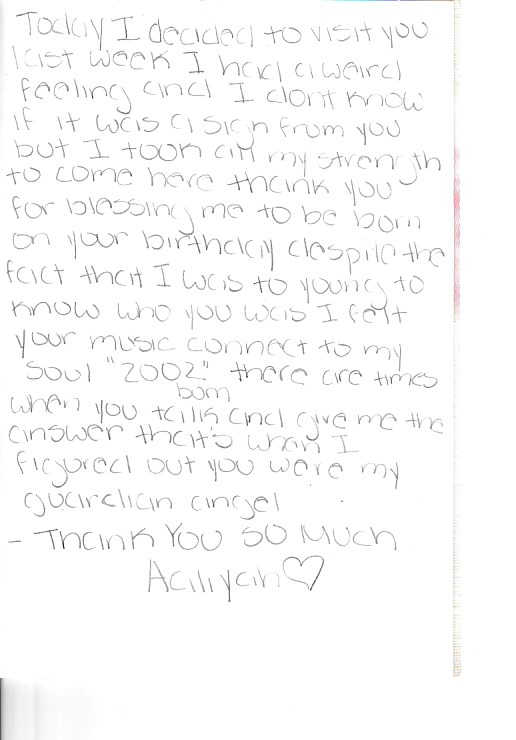 Today I decided to visit you
last week I had a weird
feeling and I dont know
if it was a sign from you
but I took all my strength
to come here thank you
for blessing me to be born
on your birthday despite the
fact that I was to young to
know who you was I felt
your music connect to my
soul "2002" there are times
born
when you talk and give me the
answer that's when I
figured out you were my
guardian angel
- Thank You SO Much
Aaliyah♡